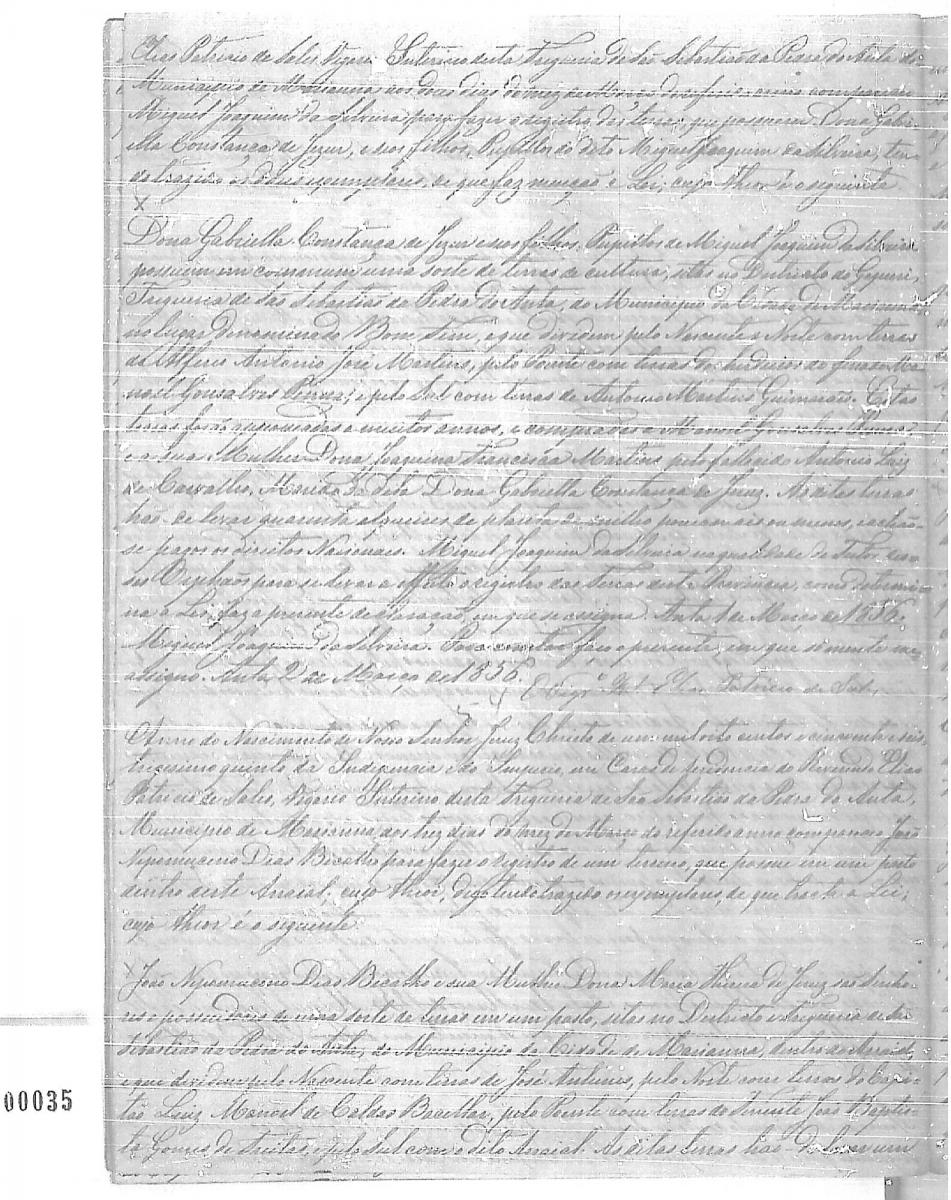 Elias Patricio de Sales, Vigario Interino desta Freguesia de São Sebastião da Pedra do Anta do
Municipio de Marianna aos dous dias do mez de Março do referido anno compareceo
Miguel Joaquim da Silveira, para fazer o registro das terras, que possuem Dona Gabri-
ella Constança de Jezuz, e seos filhos, Pupillos do dito Miguel Joaquim da Silveira, ten-
do trazido os dous exemplares, de que faz menção a Lei; cujo theor é o seguinte
X
Dona Gabriella Constança de Jezuz e seos filhos, Pupillos de Miguel Joaquim da Silveira
possuem em commum uma sorte de terras de cultura, sitas no Destricto do
Freguesia de São Sebastião da Pedra do Anta, do Municipio da Cidade de Marianna,
no lugar denominado Bom Fim, e que dividem pelo Nascente e Norte com terras
do Alferes Antonio José Martins, pelo Poente com terras dos herdeiros do finado Ma-
noel Gonsalves e pelo Sul com terras de Antonio Martins Guimarães. Estas
terras forão a muitos annos, e compradas a Manoel Gonsalves
e a sua Mulher Dona Joaquina Francisca Martins pelo fallecido Antonio Luiz
de Carvalho, Marido da dita Dona Gabriella Constança de Jezuz. As ditas terras
hão de levar quarenta alqueires de planta de milho pouco mais ou menos, e achão-
se pagos os direitos Nacionaes. Miguel Joaquim da Silveira na qualidade de Tutor
dos Orphãos para se levar a effeito o registro das terras desta Provincia, como determi-
na a Lei, faz a presente declaração, em que se assigna. Anta 1 de Março de 1856.
Miguel Joaquim da Silveira. Para constar faço o presente, em que somente me
assigno. Anta 2 de Março de 1856.
O Vigr.º Elias Patricio de Sales
54
Anno do Nascimento de Nosso Senhor Jezuz Christo de um mil oito centos e cincoenta e seis,
trigesimo quinto da Independencia e do Imperio, em Caza de rezidencia do Reverendo Elias
Patricio de Sales, Vigario Interino desta Freguesia de São Sebastião da Pedra do Anta,
Municipio de Marianna, aos trez dias do mez de Março do referido anno compareceo João
Nepomuceno Dias Bicalho para fazer o registro de um terreno, que possue em um pasto
dentro deste Arraial, cujo theor, digo tendo trazido os exemplares, de que tracta a Lei;
cujo theor é o seguinte
X
João Nepomuceno Dias Bicalho e sua Mulher Dona Maria de Jezuz são Senho-
res e possuidores de uma sorte de terras em um pasto, sitas no Destricto e Freguesia de São
Sebastião da Pedra do Anta, do Municipio da Cidade de Marianna, dentro do Arraial,
e que dividem pelo Nascente com terras de José Antunes, pelo Norte com terras do Capi-
tão Luiz Manoel de Caldas Bacellar, pelo Poente com terras do Tenente João Baptis-
ta Gomes de Freitas, e pelo Sul com o dito Arraial. As ditas terras hão de levar um
00035